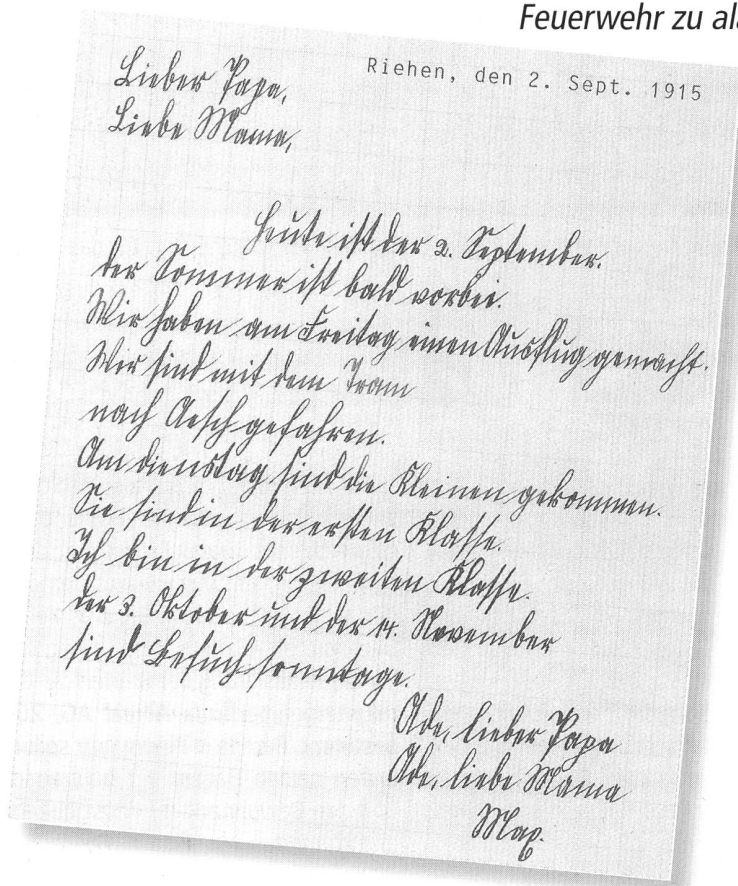 Feuerwehr zu ala
Riehen, den 2. Sept. 1915
Lieber Papa,
Liebe Mama,
Heute ist der 2. September.
der Sommer ist bald vorbei.
Wir haben am Freitag einen Ausflug gemacht.
Wir sind mit dem Tram
nach Aesch gefahren.
Am dienstag sind die Kleinen gekommen.
Sie sind in der ersten Klasse.
Ich bin in der zweiten Klasse.
der 3. Oktober und der 14. November
sind Besuchsonntage.
Ade, lieber Papa
Ade, liebe Mama
Max.